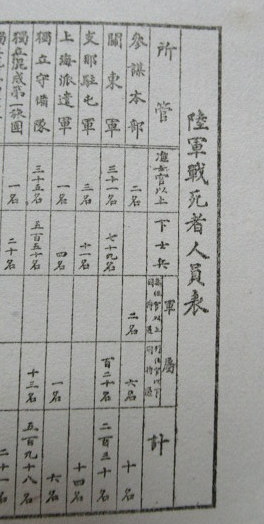 陸軍戰死者人員表
所管 准士官以上 下士兵 軍屬 計
參謀本部 二名 二名 六名 十名
關東軍 三十一名 七十九名 百二十名 二百三十名
支那駐屯軍 三名 十一名 十四名
上海派遣軍 一名 四名 一名 六名
獨立守備隊 三十五名 五百五十名 十三名 五百九十八名
獨立混成第一旅團 一名 二十名 二十一名